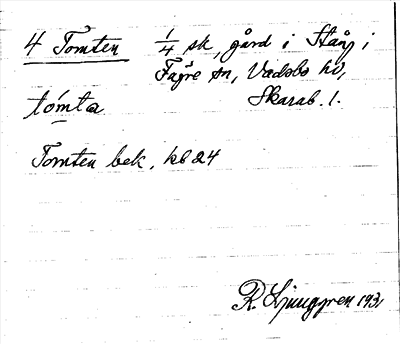 4 Tomten 1/4 sk, gård i Stång i
Fägre sn, Vadsbo hd,
Skarab. l.
tómta
Tomten bek. kb 24
R. Ljunggren 193